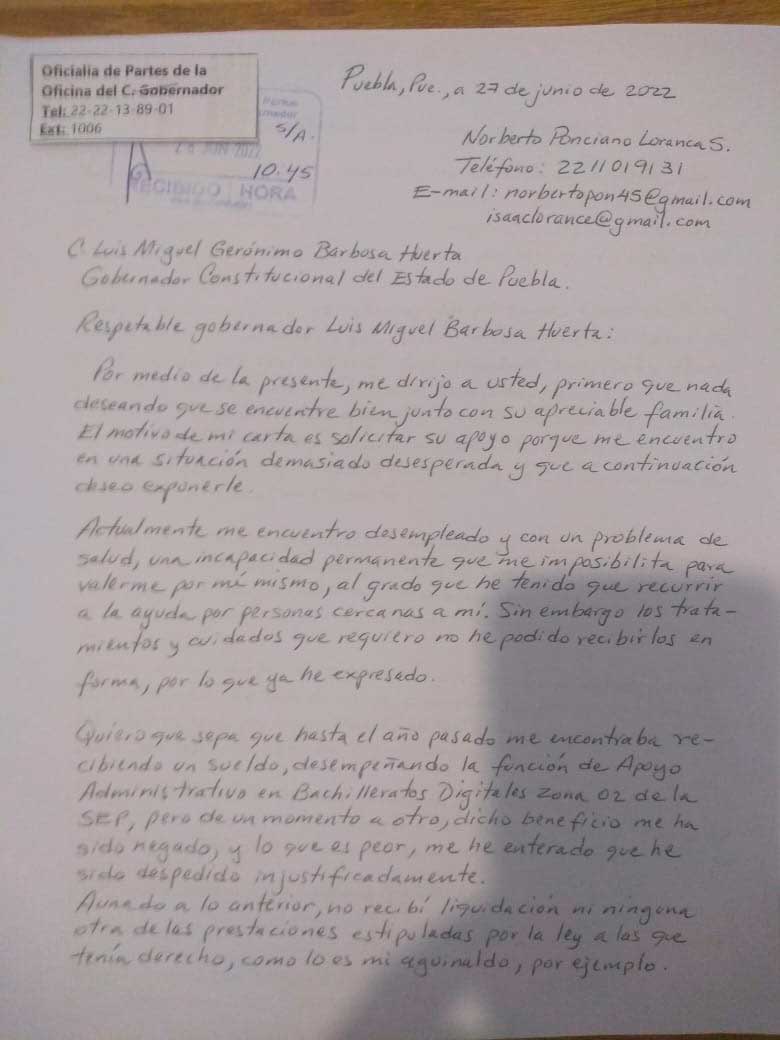 Oficialía de Partes de la
Oficina del C. Gobernador
Tel: 22-22-13-89-01
Ext: 1006
S/A.
JUN 2022
10:45
RECIBIDO HORA
Puebla, Pue., a 27 de junio de 2022
Norberto Ponciano Loranca S.
Teléfono: 2211019131
E-mail: norbertopon45@gmail.com
isaaclorance@gmail.com
C. Luis Miguel Gerónimo Barbosa Huerta
Gobernador Constitucional del Estado de Puebla.
Respetable gobernador Luis Miguel Barbosa Huerta:
Por medio de la presente, me dirijo a usted, primero que nada
deseando que se encuentre bien junto con su apreciable familia.
El motivo de mi carta es solicitar su apoyo porque me encuentro
en una situación demasiado desesperada y que a continuación
deseo exponerle.
Actualmente me encuentro desempleado y con un problema de
salud, una incapacidad permanente que me imposibilita para
valerme por mí mismo, al grado que he tenido que recurrir
a la ayuda por personas cercanas a mí. Sin embargo los trata-
mientos y cuidados que requiero no he podido recibirlos en
forma, por lo que ya he expresado.
Quiero que sepa que hasta el año pasado me encontraba re-
cibiendo un sueldo, desempeñando la función de Apoyo
Administrativo en Bachilleratos Digitales Zona 02 de la
SEP, pero de un momento a otro, dicho beneficio me ha
sido negado, y lo que es peor, me he enterado que he
sido despedido injustificadamente.
Aunado a lo anterior, no recibí liquidación ni ninguna
otra de las prestaciones estipuladas por la ley a las que
tenía derecho, como lo es mi aguinaldo, por ejemplo.